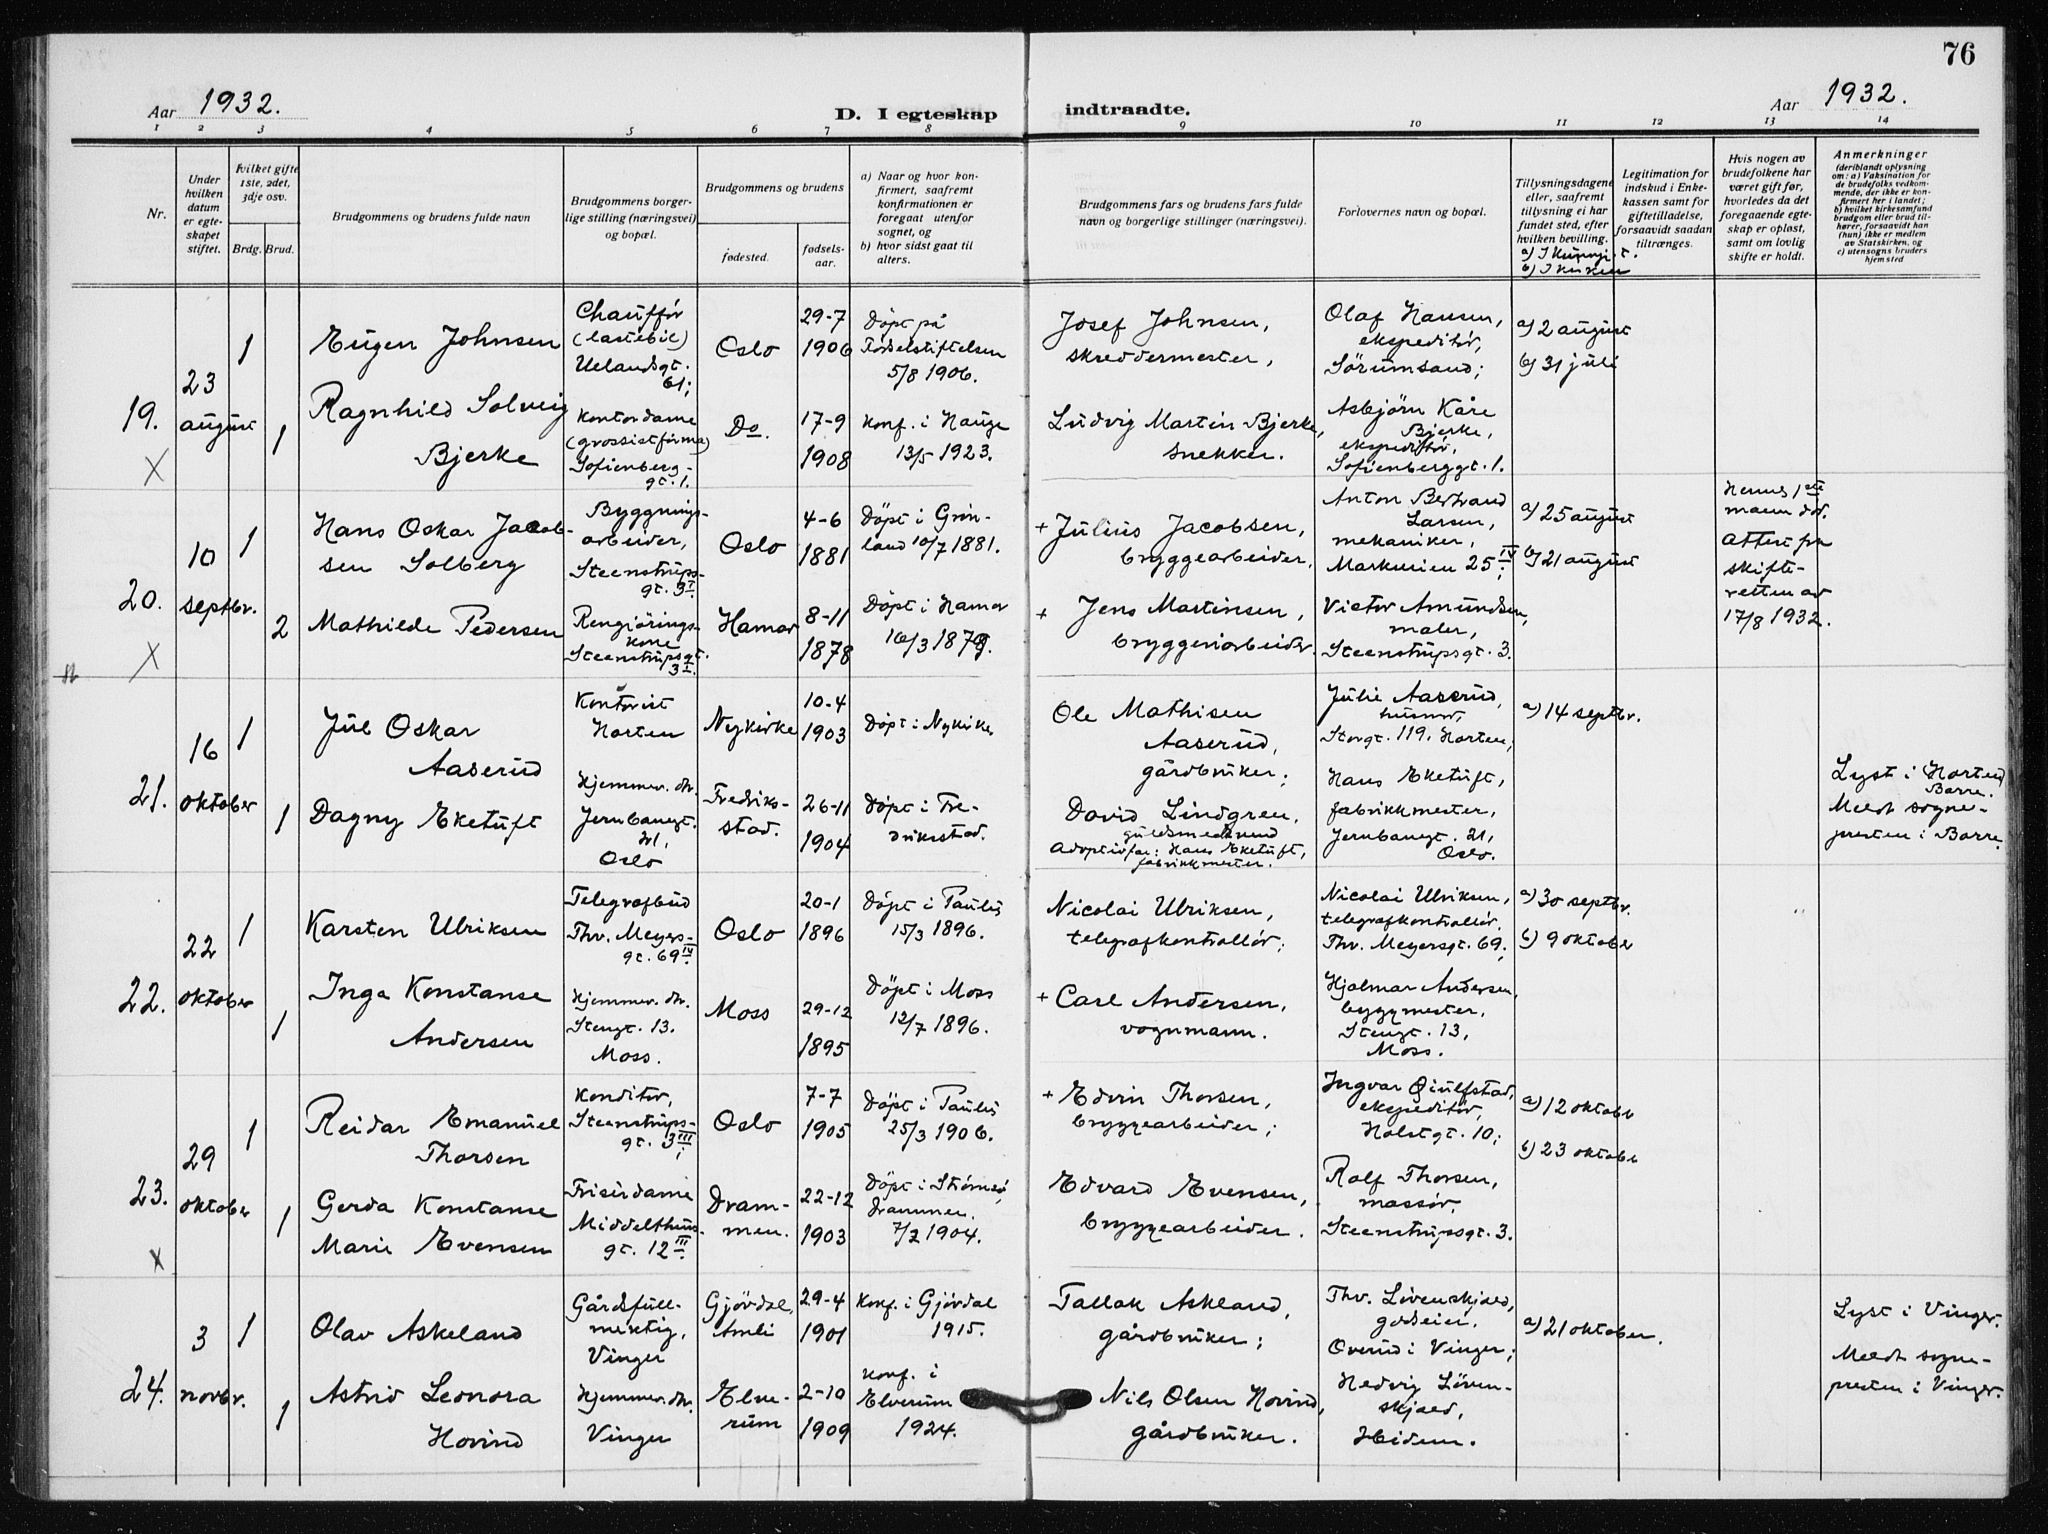 76
Aar 1932.
D. I egteskap indtraadte.
Aar 1932.
1 2 3 4 5 6 7 8 9 10 11 12 13 14
Nr.
Under hvilken datum er egteskapet stiftet.
Hvilket gifte 1ste, 2det, 3dje osv.
Brdg. Brud.
Brudgommens og brudens fulde navn
Brudgommens borgerlige stilling (næringsvei) og bopæl.
Brudgommens og brudens
fødested.
fødselsaar.
a) Naar og hvor konfirmert, saafremt konfirmationen er foregaat utenfor sognet, og
b) hvor sidst gaat til alters.
Brudgommens fars og brudens fars fulde navn og borgerlige stillinger (næringsvei).
Forlovernes navn og bopæl.
Tillysningsdagene eller, saafremt tillysning ei har fundet sted, efter hvilken bevilling.
Legitimation for indskud i Enkekassen samt for giftetilladelse, forsaavidt saadan tiltrænges.
Hvis nogen av brudefolkene har været gift før, hvorledes da det foregaaende egteskap er opløst, samt om lovlig skifte er holdt.
Anmerkninger
(deriblandt oplysning om: a) Vaksination for de brudefolks vedkommende, der ikke er konfirmert her i landet; b) hvilket kirkesamfund brudgom eller brud tilhører, forsaavidt han (hun) ikke er medlem av Statskirken, og c) utensogns bruders hjemsted
19.
23
august
1
Eugen Johnsen
Chauffør
(lastebil)
Uelandsgt.
61;
Oslo
29-7
1906
Døpt på
Fødselstiftelsen
5/8 1906.
Josef Johnsen,
skreddermester,
Olaf Hansen,
ekspeditør,
Sørumsand;
a) 2 august
b) 31 juli
1
Ragnhild Solveig
Bjerke
Kontordame
(grossistfirma)
Sofienberg-
gt. 1.
Do.
17-9
1908
Konf. i Hauge
13/5 1923.
Ludvig Martin Bjerke,
snekker.
Asbjørn Kåre
Bjerke,
ekspeditør,
Sofienberggt. 1.
20.
10
septbr.
1
Hans Oskar Jacob-
sen Solberg
Byggnings-
arbeider,
Steenstrups-
gt. 3 I
Oslo
4-6
1881
Døpt i Grøn-
land 10/7 1881.
+ Julius Jacobsen,
bryggearbeider,
Anton Bertrand
Larsen,
mekaniker,
Markveien 25 IV;
a) 25 august
b) 21 august
Hennes 1ste
mann død.
Attest fra
skifte-
retten av
17/8 1932.
2
Mathilde Pedersen
Rengjørings-
kone
Steenstrupsgt.
3 I.
Hamar
8-11
1878
Døpt i Hamar
16/3 1879.
+ Jens Martinsen,
bryggeriarbeider.
Victor Amundsen,
maler,
Steenstrupsgt. 3.
21.
16
oktober
1
Jul Oskar
Aaserud
Kontorist
Horten
Nykirke
10-4
1903
Døpt i Nykirke
Ole Mathisen
Aaserud,
gårdbruker;
Julie Aaserud,
husmor,
Storgt. 119, Horten;
a) 14 septbr.
Lyst i Horten
Borre.
Meldt sogne-
presten i Borre.
1
Dagny Eketuft
Hjemmev. dtr.
Jernbanegt.
21,
Oslo
Fredrik-
stad.
26-11
1904
Døpt i Fre-
drikstad.
David Lindgren,
guldsmedsvend
Adoptivfar: Hans Eketuft,
fabrikkmester.
Hans Eketuft,
fabrikkmester,
Jernbanegt. 21,
Oslo.
22.
22
oktober
1
Karsten Ulriksen
Telegrafbud
Thv. Meyers-
gt. 69 IV
Oslo
20-1
1896
Døpt i Paulus
15/3 1896.
Nicolai Ulriksen,
telegrafkontrollør;
Nicolai Ulriksen,
telegrafkontrollør,
Thv. Meyersgt. 69;
a) 30 septbr.
b) 9 oktober
1
Inga Konstanse
Andersen
Hjemmev. dtr.
Stengt. 13.
Moss.
Moss
29-12
1895
Døpt i Moss
12/7 1896.
+ Carl Andersen,
vognmann.
Hjalmar Andersen,
byggmester,
Stengt. 13,
Moss.
23.
29
oktober
1
Reidar Emanuel
Thorsen
Konditor,
Steenstrups-
gt. 3 III;
Oslo
7-7
1905
Døpt i Paulus
25/3 1906.
+ Edvin Thorsen,
bryggearbeider;
Ingvar Gjulfstad,
ekspeditør,
Holstgt. 10;
a) 12 oktober
b) 23 oktober
1
Gerda Konstanse
Marie Evensen
Frisørdame
Middelthuns-
gt. 12 III.
Dram-
men.
22-12
1903
Døpt i Strømsø,
Drammen.
7/2 1904.
Edvard Evensen,
bryggearbeider.
Rolf Thorsen,
massør,
Steenstrupsgt. 3.
24.
3
novbr.
1
Olav Askeland
Gårdsfull-
mektig,
Vinger
Gjøvdal,
Amli
29-4
1901
Konf. i Gjøvdal
1915.
Tallak Askland,
gårdbruker;
Thv. Løvenskjold,
godseier,
Overud i Vinger;
a) 21 oktober.
Lyst i Vinger.
Meldt sogne-
presten i Vinger.
1
Astrid Leonora
Hovind
Hjemmev. dtr.
Vinger
Elve-
rum
2-10
1909
Konf. i
Elverum
1924.
Nils Olsen Hovind,
gårdbruker.
Hedvig Løven-
skjold,
Ibidem.